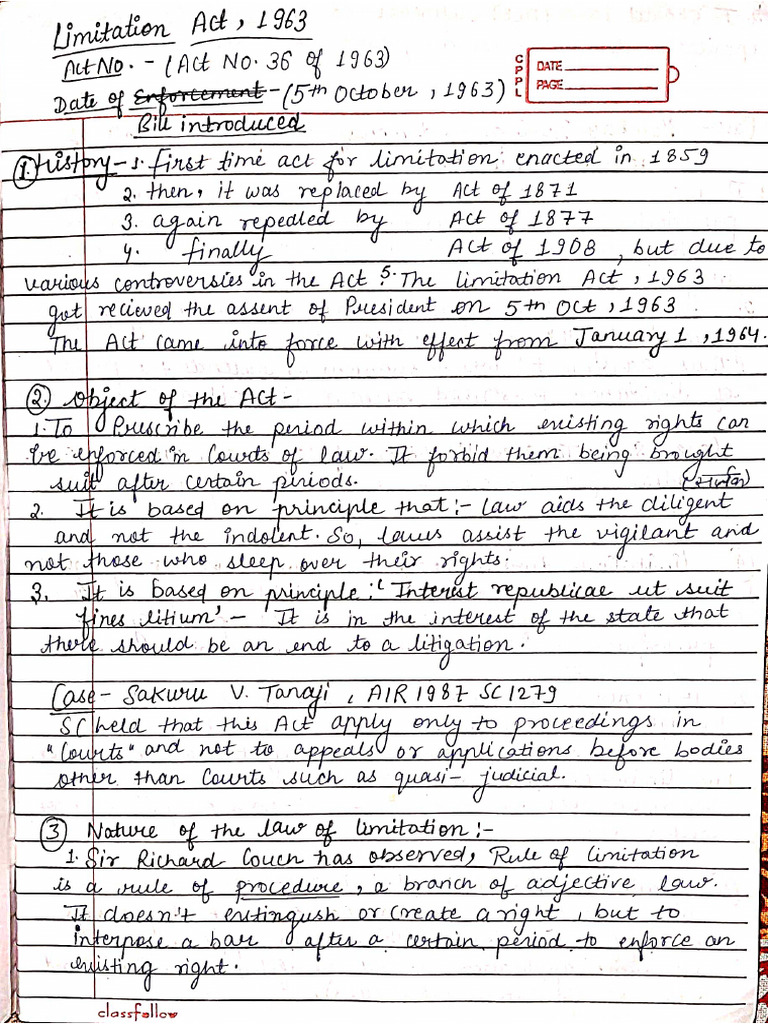 Limitation Act, 1963
Act No. - (Act No. 36 of 1963)
Date of Enforcement - (5th October, 1963)
Bill introduced
CPPL
DATE
PAGE
1. History - 1. first time act for limitation enacted in 1859
2. then, it was replaced by Act of 1871
3. again repealed by Act of 1877
4. finally Act of 1908, but due to
various controversies in the Act. 5. The limitation Act, 1963
got recieved the assent of President on 5th Oct, 1963
The Act came into force with effect from January 1, 1964.
2. Object of the Act -
1. To Prescribe the period within which existing rights can
be enforced in Courts of law. It forbid them being brought
suit after certain periods.
2. It is based on principle that :- Law aids the diligent
and not the indolent. So, laws assist the vigilant and
not those who sleep over their rights.
3. It is based on principle : 'Interest republicae ut suit
fines litium' - It is in the interest of the state that
there should be an end to a litigation.
Case - Sakuru V. Tanaji, AIR 1987 SC 1279
SC held that this Act apply only to proceedings in
"Courts" and not to appeals or applications before bodies
other than Courts such as quasi-judicial.
3 Nature of the law of limitation :-
1. Sir Richard Couch has observed, Rule of limitation
is a rule of procedure, a branch of adjective law.
It doesn't extinguish or create a right, but to
interpose a bar after a certain period to enforce an
existing right.
classfellow